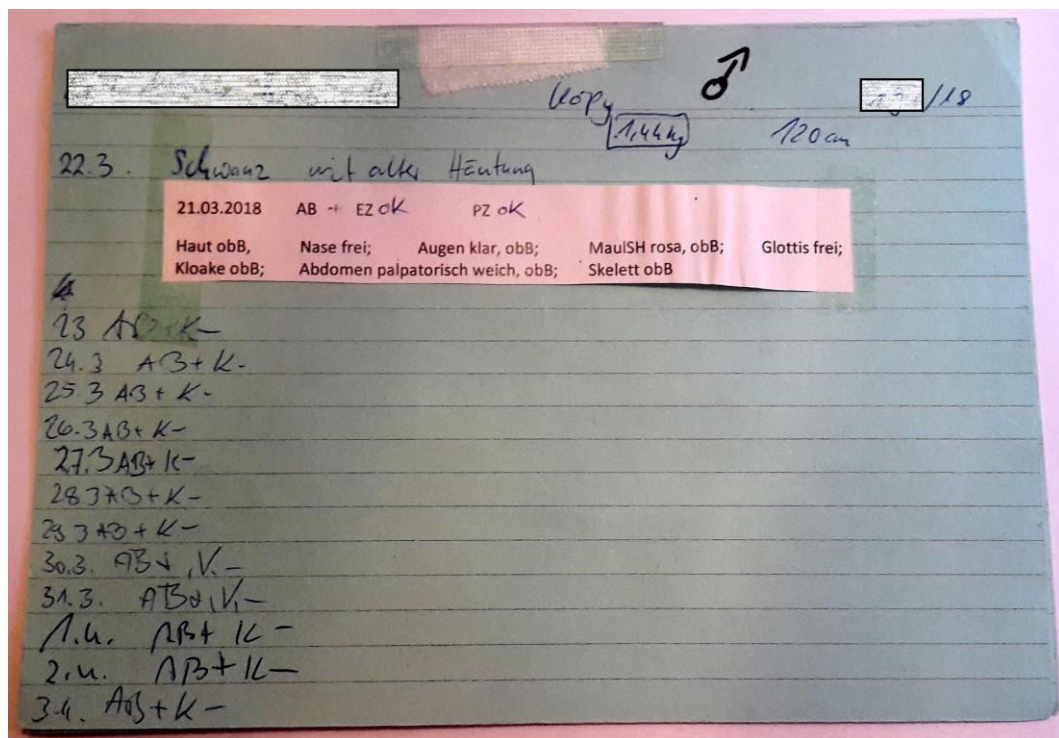 ♂
/18
1,44 kg 120 cm
22.3. Schwanz mit alter Häutung
21.03.2018 AB + EZ ok PZ ok
Haut obB, Nase frei; Augen klar, obB; MaulSH rosa, obB; Glottis frei;
Kloake obB; Abdomen palpatorisch weich, obB; Skelett obB
23 AB + K-
24.3 AB+ K-
25.3 AB+ K-
26.3 AB+ K-
27.3 AB+ K-
28 3 AB+ K-
29 3 AB + K-
30.3. AB+, K-
31.3. AB+, K-
1.4. AB+ K-
2.4. AB+ K-
3.4. AB+ K-